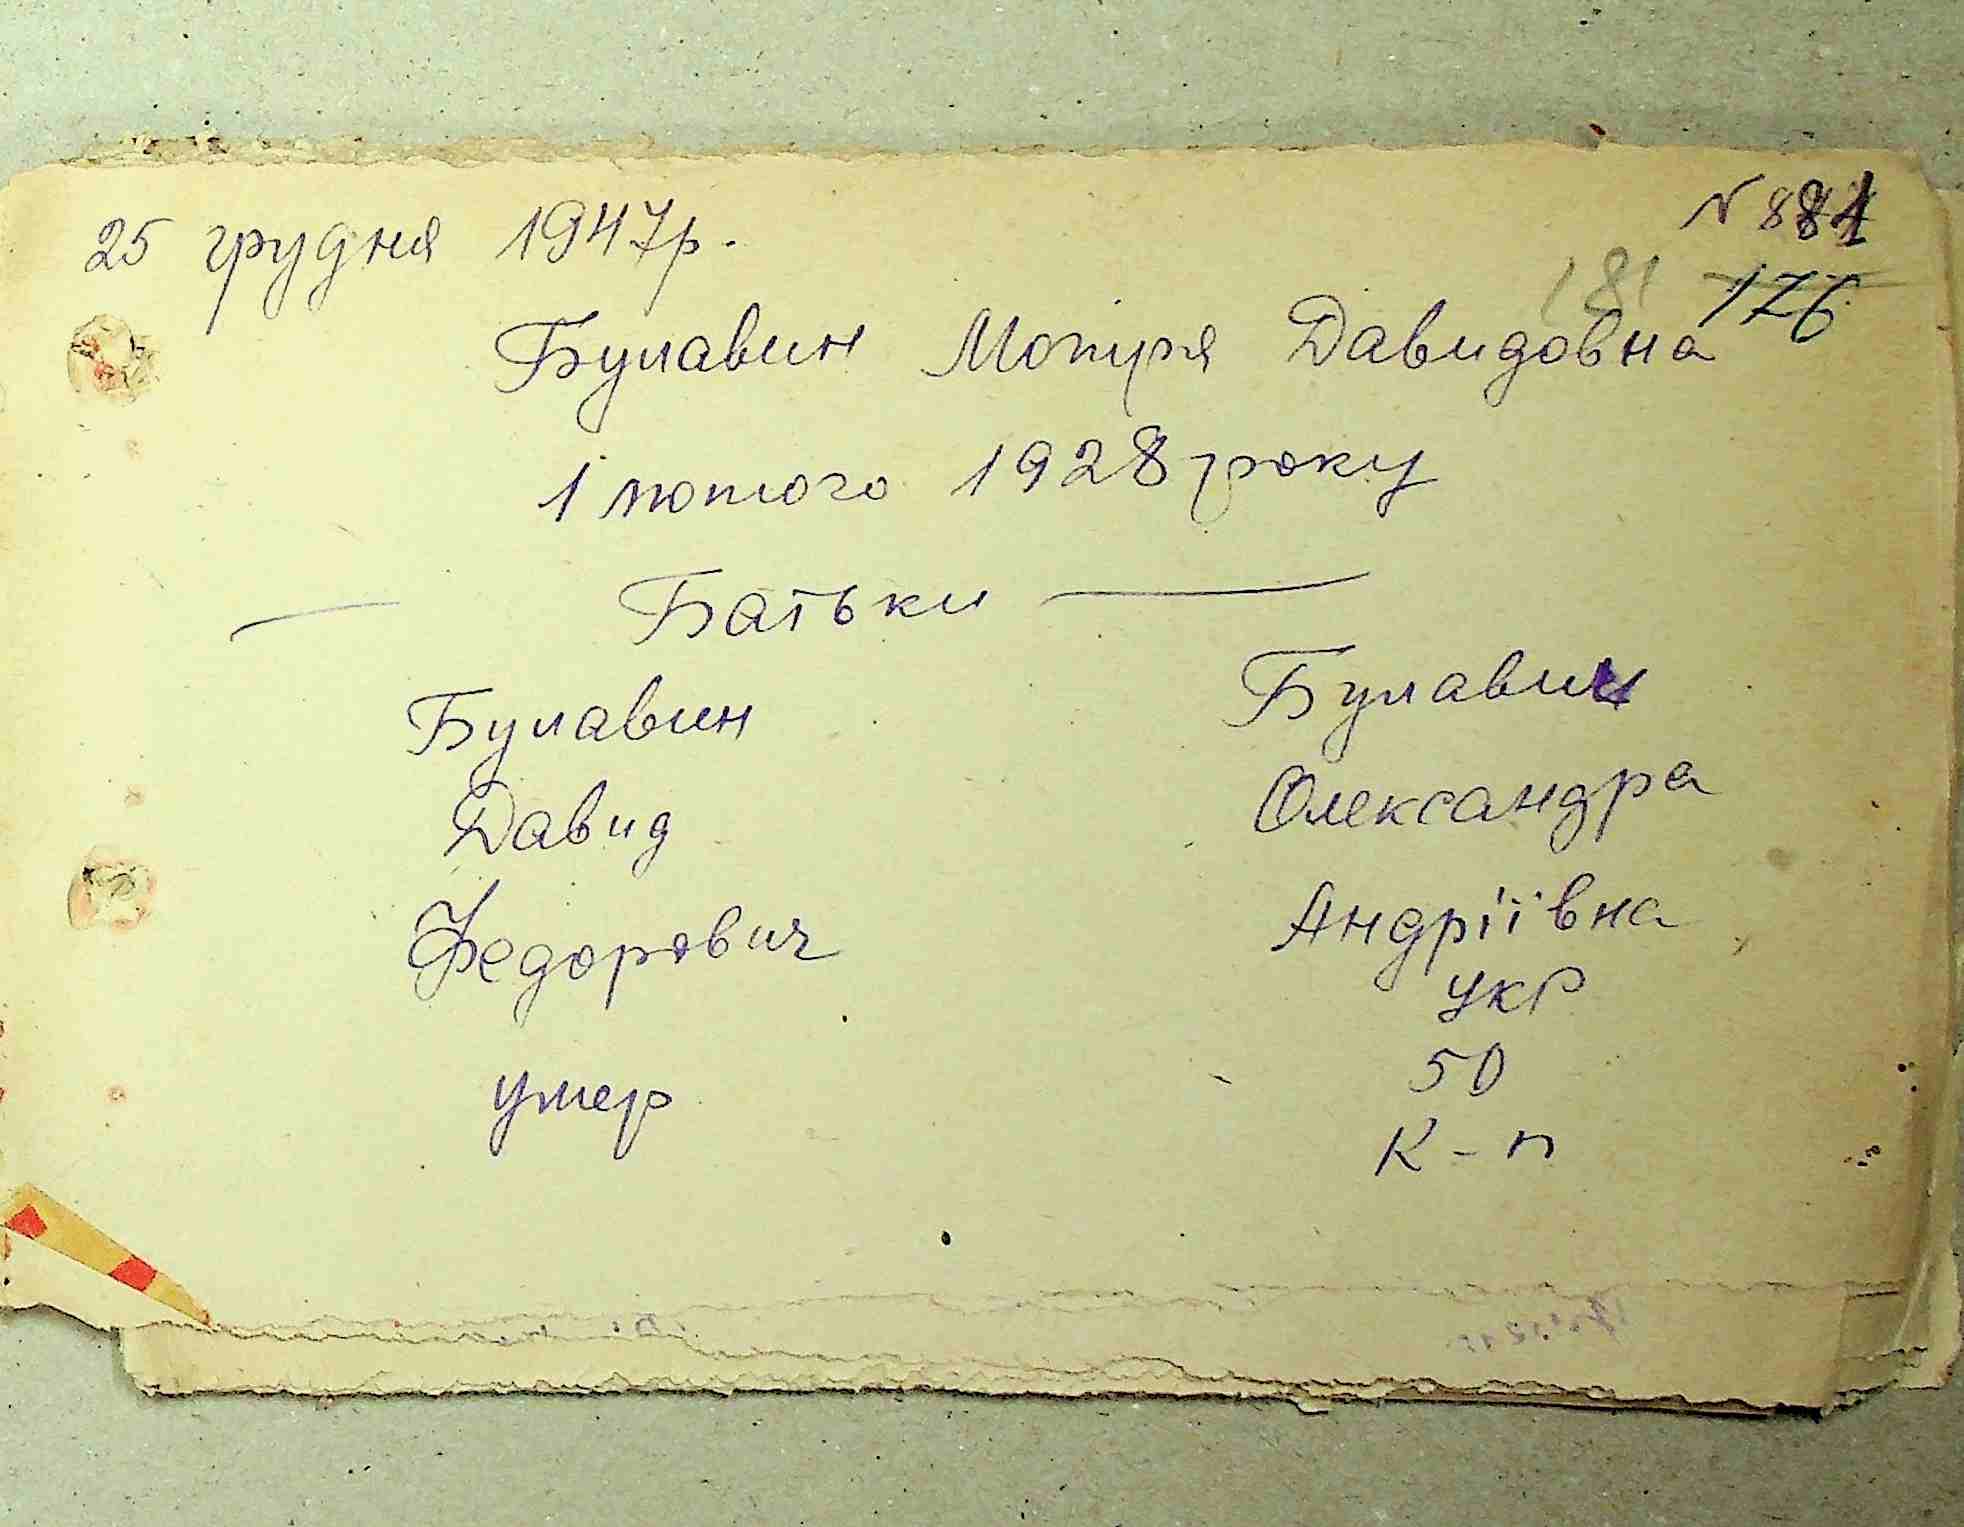 25 грудня 1947р.
№ 881
181 176
Булавин Мотря Давидовна
1 лютого 1928 року
Батьки
Булавин Булавин
Давид Олександра
Федорович Андріївна
укр
умер 50
К-п